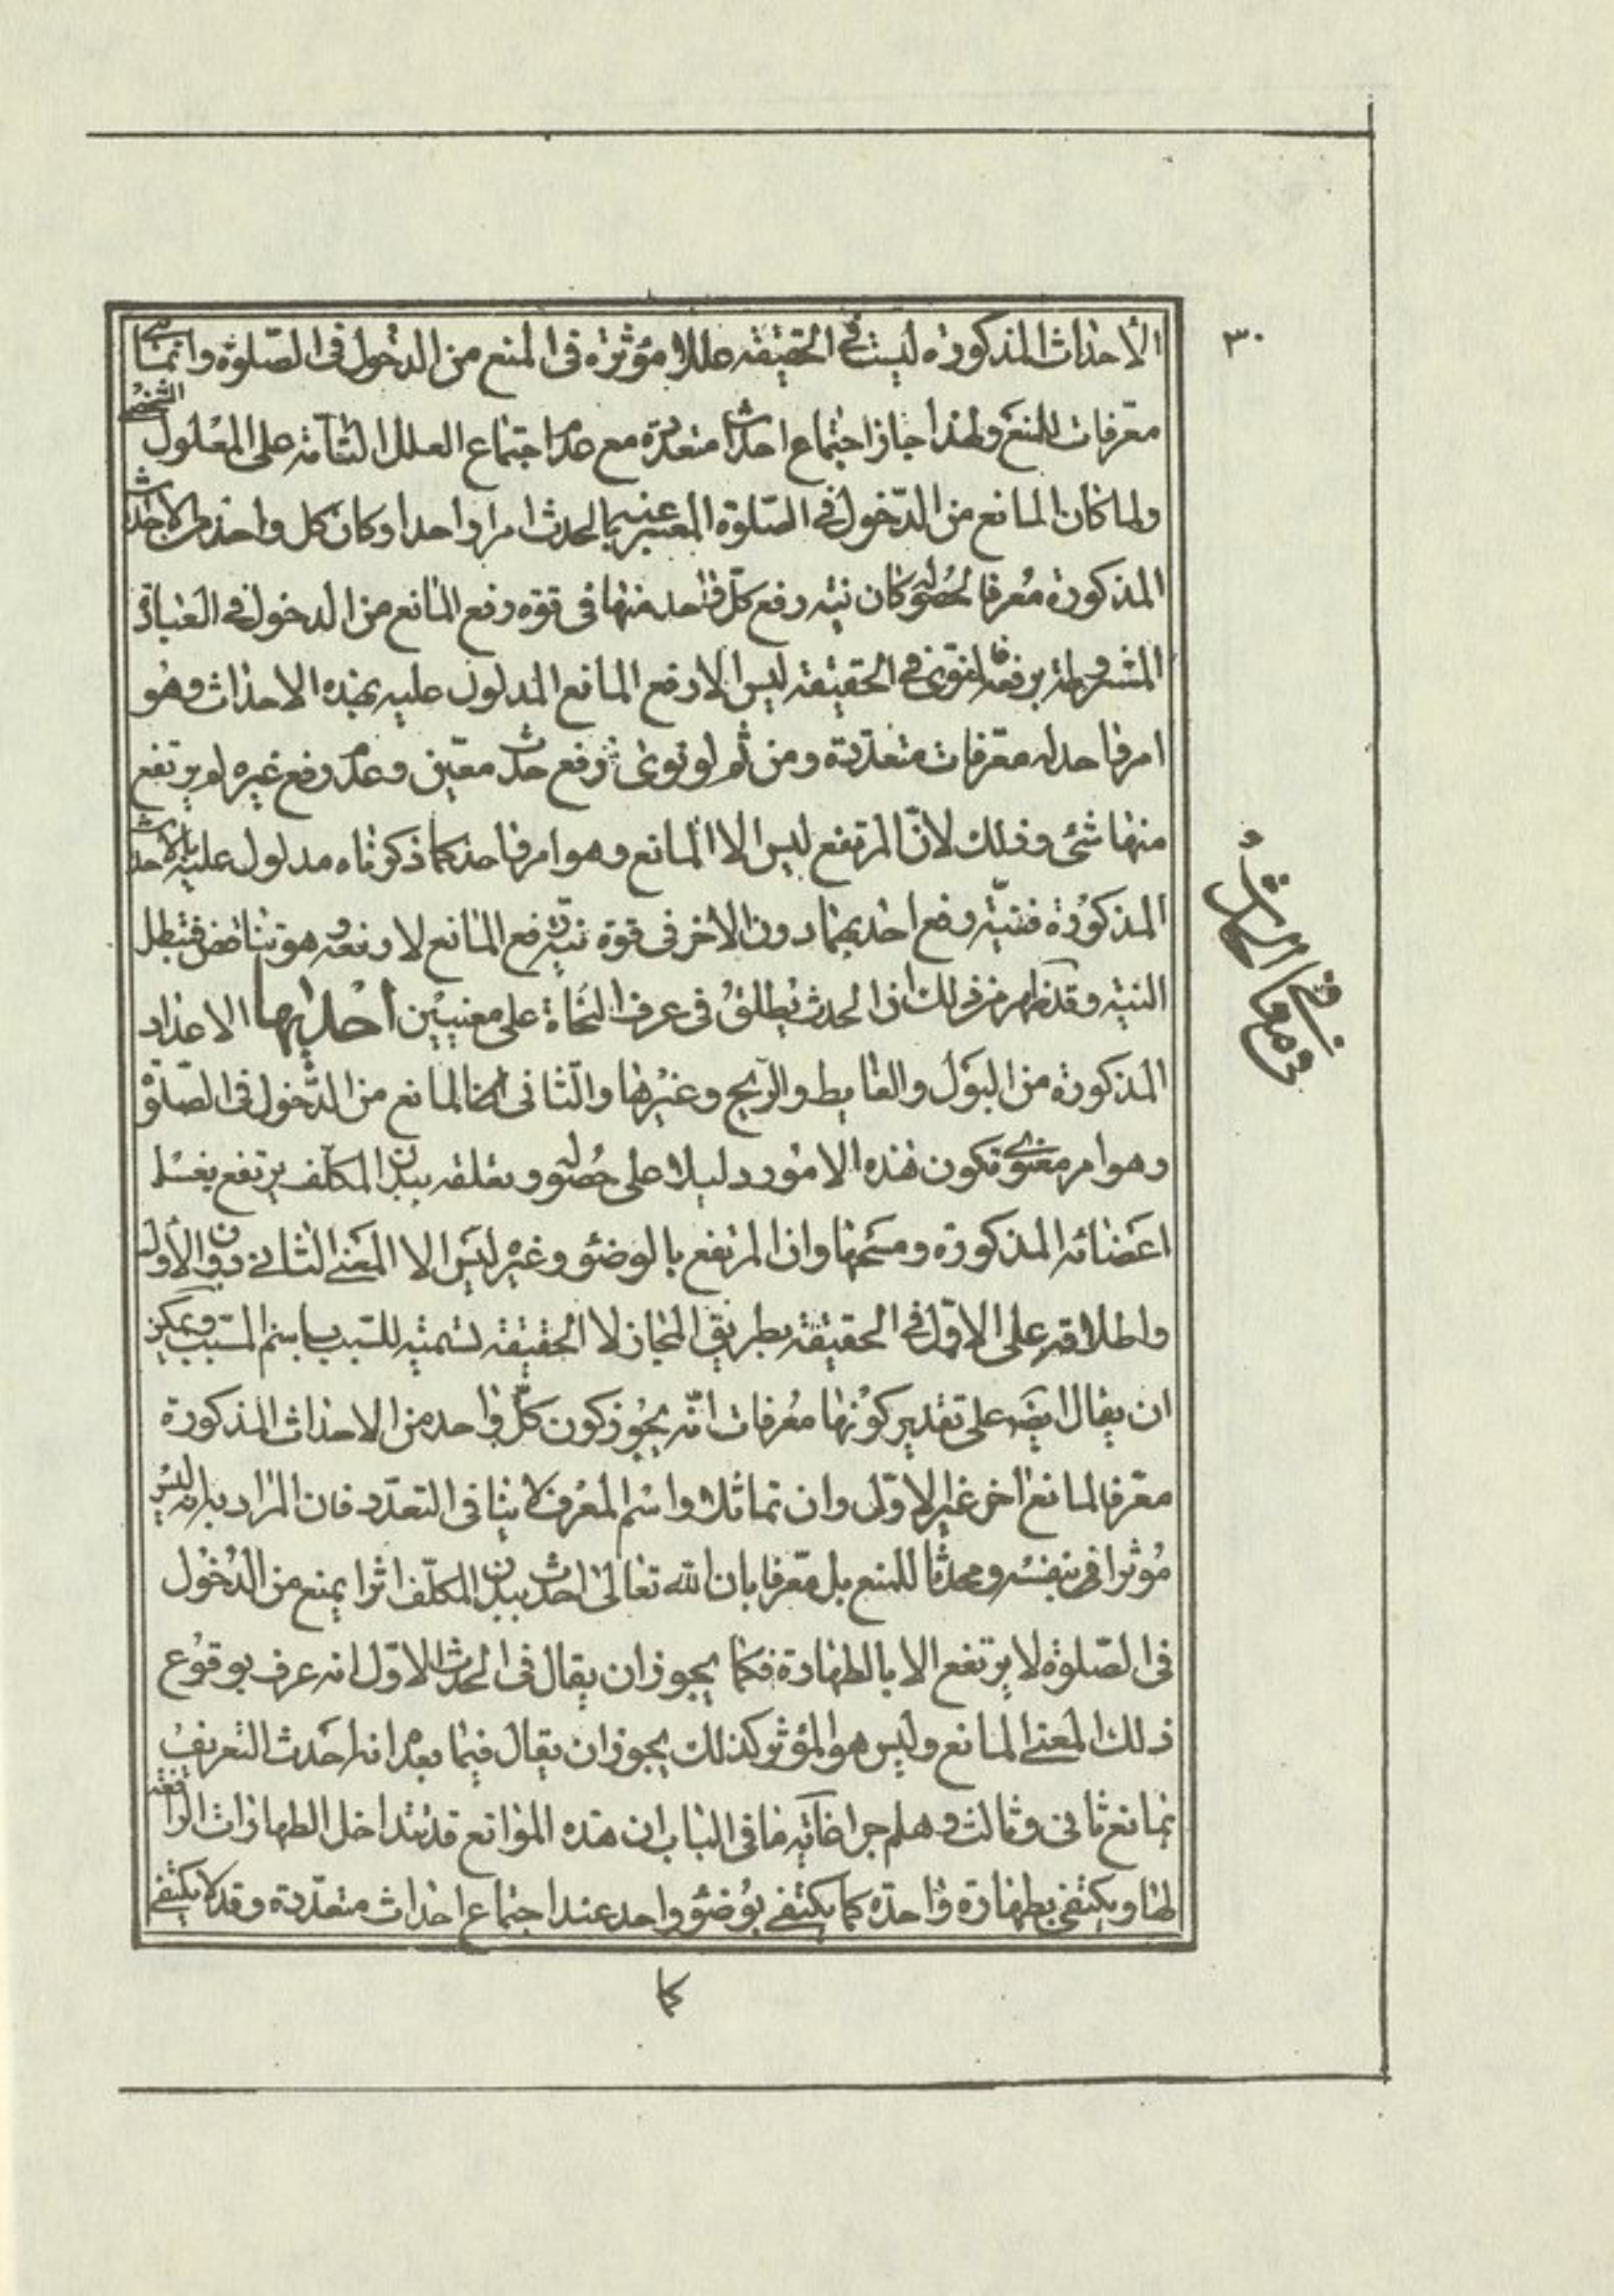 ٣٠
الأحداث المذكورة ليست في الحقيقة عللا مؤثرة في المنع من الدخول في الصلوة وانما هي
معرفات للمنع ولهذا جاز اجتماع احداث متعددة مع عدم اجتماع العلل التامة على المعلول الشخصي
ولما كان المانع من الدخول في الصلوة المعبر عنه بالحدث امرا واحدا وكان كل واحد من الاحداث
المذكورة معرفا لحصوله كان نية رفع كل واحد منها في قوة رفع المانع من الدخول في العبادة
المشروطة برفعه اذ في الحقيقة ليس الا رفع المانع المدلول عليه بهذه الاحداث وهو
امر واحد له معرفات متعددة ومن ثم لو نوى رفع حدث معين وعدم رفع غيره لم يرتفع
منها شئ وذلك لان المرتفع ليس الا المانع وهو امر واحد كما ذكرناه مدلول عليه بالاحداث
المذكورة فنية رفع احديهما دون الاخر في قوة نية رفع المانع لا رفعه وهو تناقض فتبطل
النية وقد ظهر من ذلك ان الحدث يطلق في عرف النحاة على معنيين أحديهما الاعداد
المذكورة من البول والغايط والريح وغيرها والثاني المانع من الدخول في الصلوة
وهو امر معنوي تكون هذه الامور دليلا على حصوله وتعلقه ببدن المكلف يرتفع بغسل
اعضائه المذكورة ومسحها وان المرتفع بالوضوء وغيره ليس الا المعنى الثاني دون الأول
واطلاقه على الاول في الحقيقة بطريق المجاز لا الحقيقة تسمية للسبب باسم المسبب ويمكن
ان يقال ايضا على تقدير كونها معرفات انه يجوز كون كل واحد من الاحداث المذكورة
معرفا لمانع اخر غير الاول وان تماثلا واسم المعرف لا ينافي التعدد فان المراد به انه ليس
مؤثرا في نفسه ومحدثا للمنع بل معرفا بان الله تعالى احدث ببدن المكلف اثرا يمنع من الدخول
في الصلوة لا يرتفع الا بالطهارة فكما يجوز ان يقال في الحدث الاول انه عرف بوقوع
ذلك المعنى المانع وليس هو المؤثر كذلك يجوز ان يقال فيما بعد انه احدث التعريف
بمانع ثاني وثالث وهلم جرا غاية ما في الباب ان هذه الموانع قد تتداخل الطهارات الرافعة
لها ويكتفى بطهارة واحدة كما يكتفى بوضوء واحد عند اجتماع احداث متعددة وقد لا يكتفى
كما